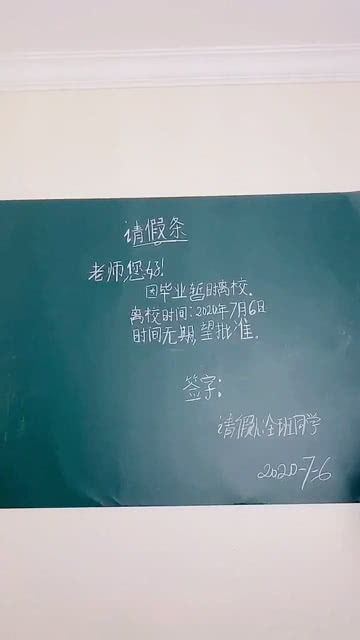 请假条
老师您好!
因毕业暂时离校.
离校时间:2020年7月6日
时间无期,望批准.
签字:
请假人:全班同学
2020-7-6